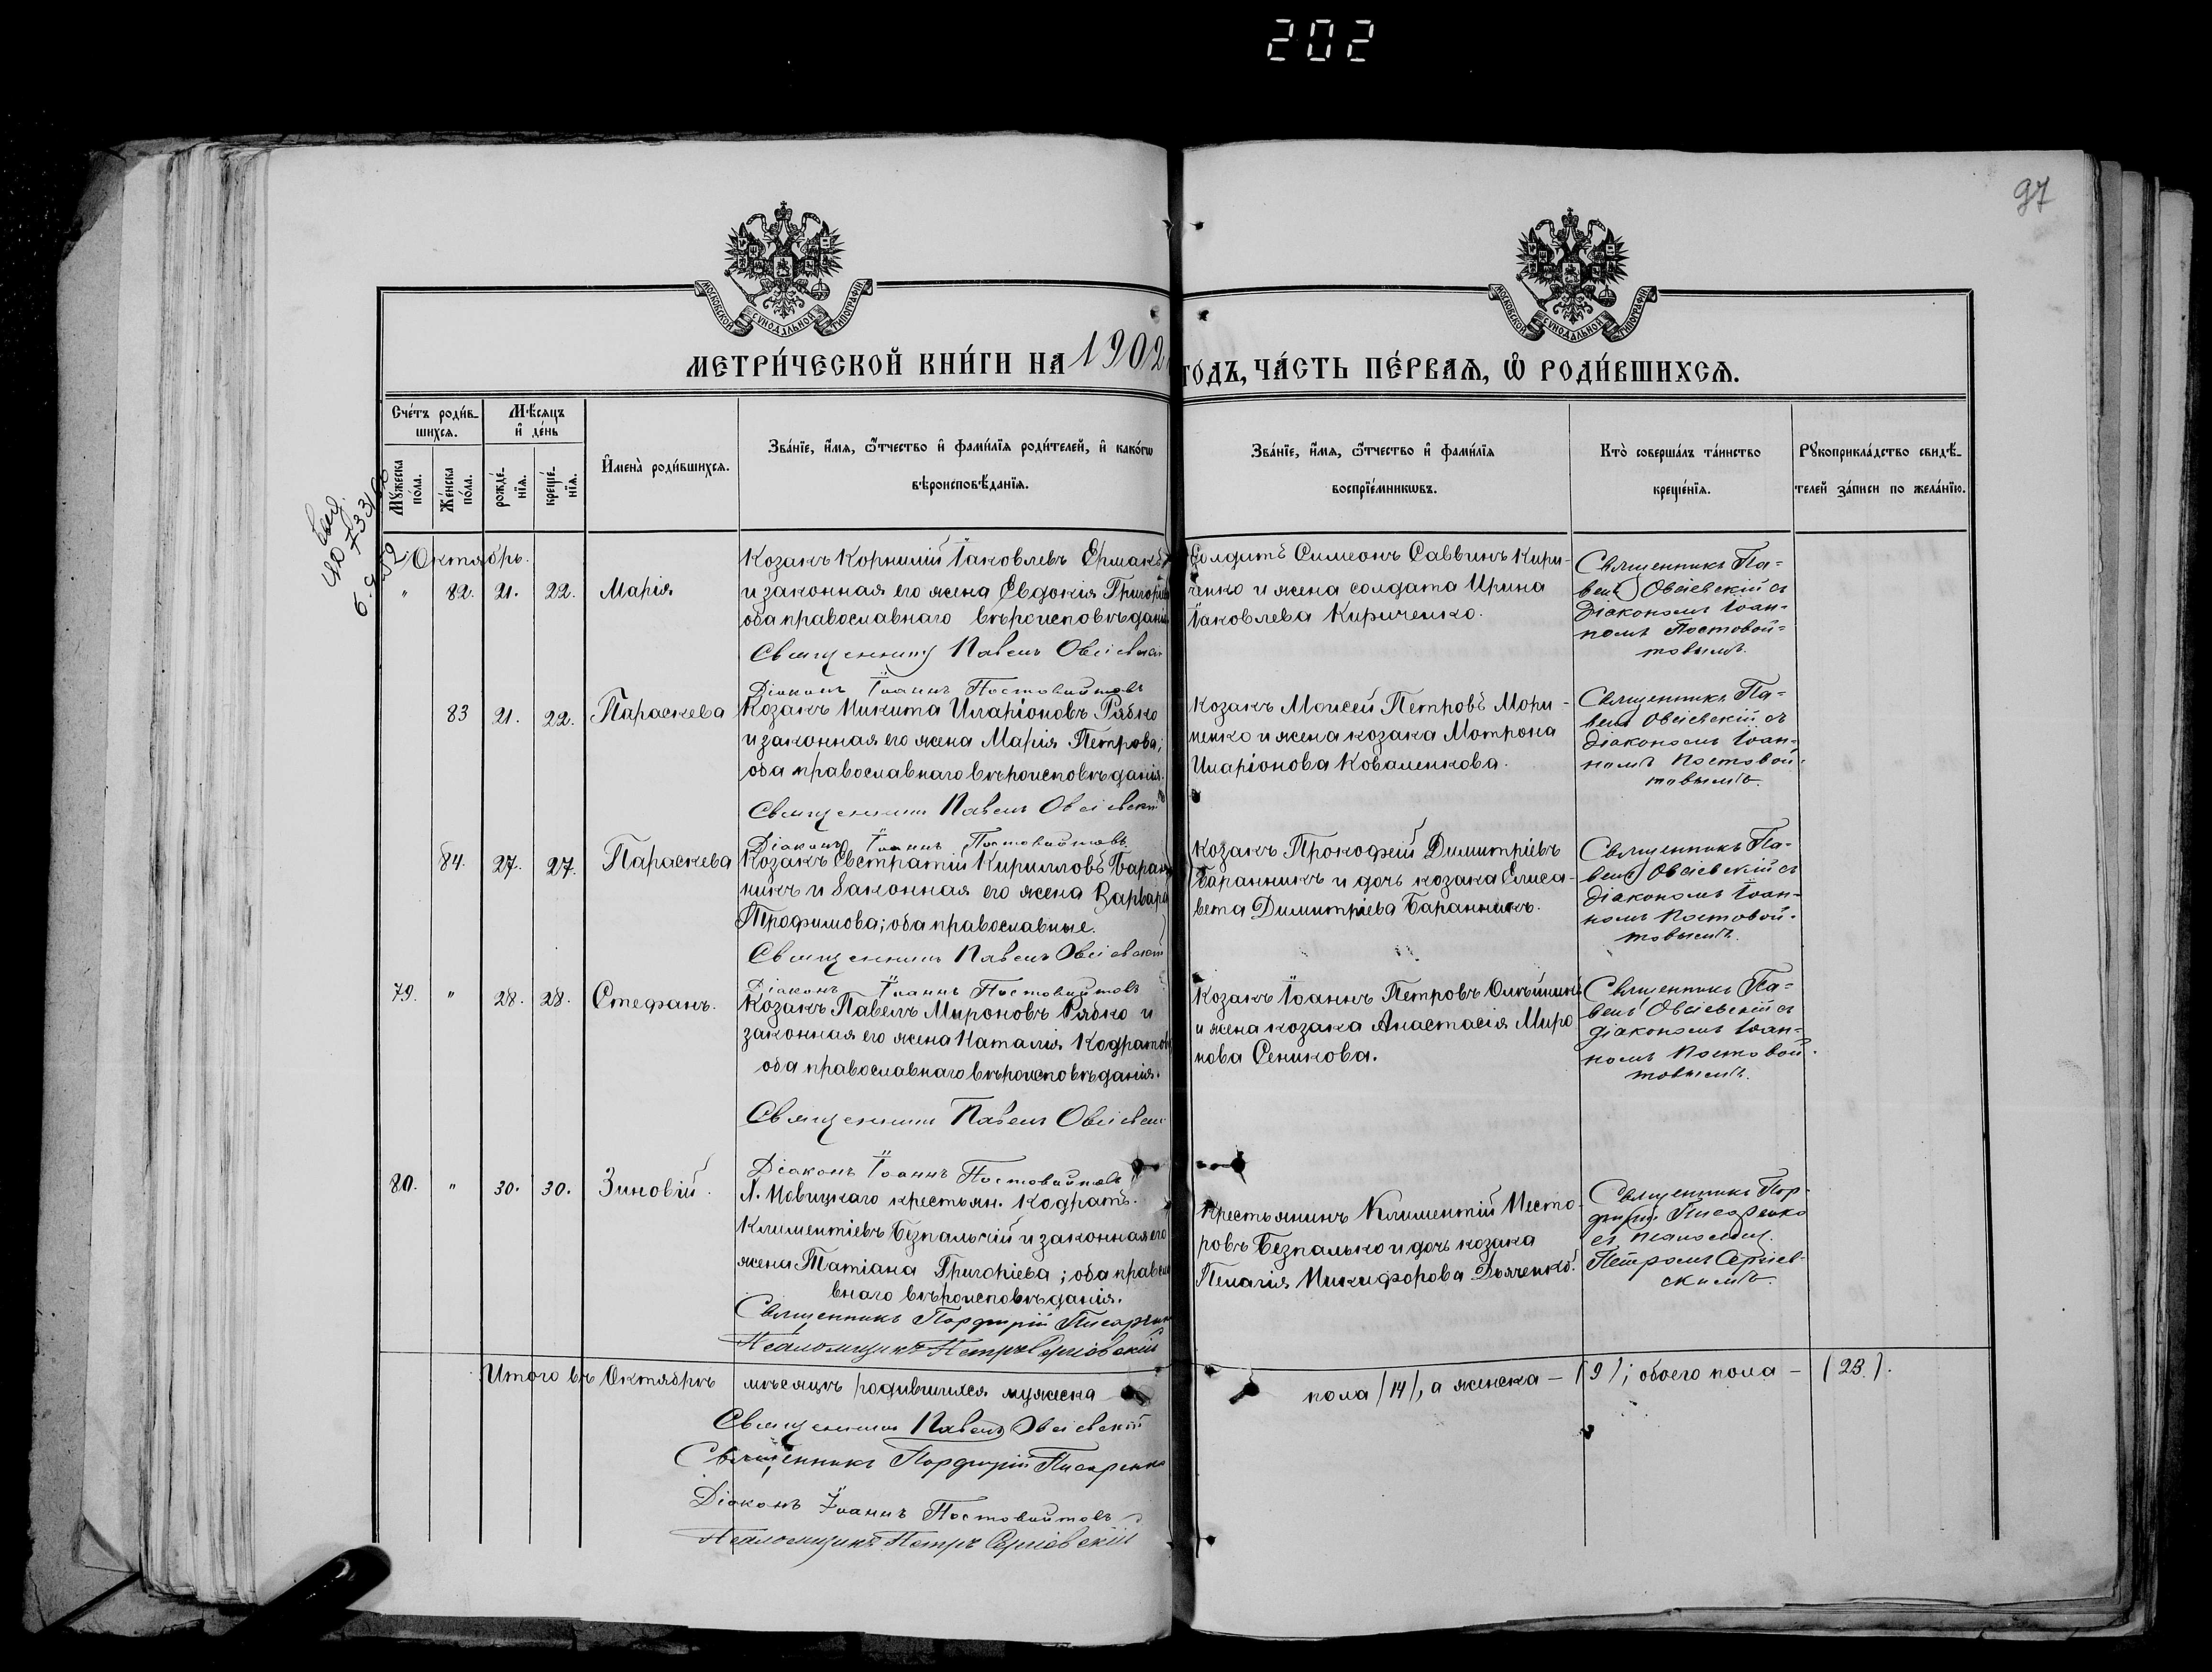 202
97
МОСКОВСКОЙ СУНОДАЛЬНОЙ ТИПОГРАФІИ
МОСКОВСКОЙ СУНОДАЛЬНОЙ ТИПОГРАФІИ
МЕТРИ́ЧЕСКОЙ КНИ́ГИ НА 1902 ГО́ДЪ, ЧА́СТЬ ПЕ́РВАѦ, Ѡ҆ РОДИ́ВШИХСѦ.
Сче́тъ роди́в-
шихсѧ.
Мꙋ́жеска по́ла.
Же́нска по́ла.
Мѣ́сѧцъ
и҆ де́нь
рожде́-
нїѧ.
креще́-
нїѧ.
И҆мена̀ роди́вшихсѧ.
Зва́нїе, и҆́мѧ, ѻ҆́тчество и҆ фами́лїѧ роди́телей, и҆ како́гѡ
вѣроисповѣ́данїѧ.
Зва́нїе, и҆́мѧ, ѻ҆́тчество и҆ фами́лїѧ
воспрїе́мникѡвъ.
Кто̀ соверша́лъ та́инство
креще́нїѧ.
Рꙋкоприкла́дство свидѣ́-
телей за́писи по жела́нїю.
Октябрь.
" 82. 21. 22. Марія
Козакъ Корнилій Іаковлевъ Ермакъ
и законная его жена Евдокія Григорьев
оба православнаго вѣроисповѣданія
Священникъ Павелъ Овсіевскій
Діаконъ Іоаннъ Постовойтовъ
Солдатъ Симеонъ Саввинъ Кири-
ченко и жена солдата Ирина
Іаковлева Кириченко.
Священникъ Па-
велъ Овсіевскій съ
діакономъ Іоан-
номъ Постовой-
товымъ.
83 21. 22. Параскева
Козакъ Никита Иларіоновъ Рябко
и законная его жена Марія Петрова;
оба православнаго вѣроисповѣданія.
Священникъ Павелъ Овсіевскій
Діаконъ Іоаннъ Постовойтовъ
Козакъ Моисей Петровъ Мори-
ненко и жена козака Мотрона
Иларіонова Коваленкова.
Священникъ Па-
велъ Овсіевскій съ
діакономъ Іоан-
номъ Постовой-
товымъ.
84. 27. 27. Параскева
Козакъ Евстратій Кирилловъ Баран
никъ и законная его жена Варвара
Трофимова; оба православные.
Священникъ Павелъ Овсіевскій
Діаконъ Іоаннъ Постовойтовъ
Козакъ Прокофій Димитріевъ
Баранникъ и дочь козака Елиса-
вета Димитріева Баранникъ.
Священникъ Па-
велъ Овсіевскій съ
діакономъ Іоан-
номъ Постовой-
товымъ.
79. " 28. 28. Стефанъ.
Козакъ Павелъ Мироновъ Рябко и
законная его жена Наталія Кодратов
оба православнаго вѣроисповѣданія.
Священникъ Павелъ Овсіевскій
Діаконъ Іоаннъ Постовойтовъ
Козакъ Іоаннъ Петровъ
и жена козака Анастасія Миро
нова Сеникова.
Священникъ Па-
велъ Овсіевскій съ
діакономъ Іоан-
номъ Постовой-
товымъ.
80. " 30. 30. Зиновій.
Л. Новицкаго крестьян. Кодратъ
Климентіевъ Безпалый и законная его
жена Татіана Григоріева; оба правосла
внаго вѣроисповѣданія.
Священникъ Порфирій Писаренко
Псаломщикъ Петръ Сергіевскій
Крестьянинъ Климентій Несто-
ровъ Безпалько и дочь козака
Пелагія Никифорова Дьяченко.
Священникъ Пор-
фирій Писаренко
съ псаломщ.
Петромъ Сергіев-
скимъ.
Итого въ Октябрѣ мѣсяцѣ родившихся мужеска пола (14), а женска – (9); обоего пола – (23).
Священникъ Павелъ Овсіевскій
Священникъ Порфирій Писаренко
Діаконъ Іоаннъ Постовойтовъ
Псаломщикъ Петръ Сергіевскій